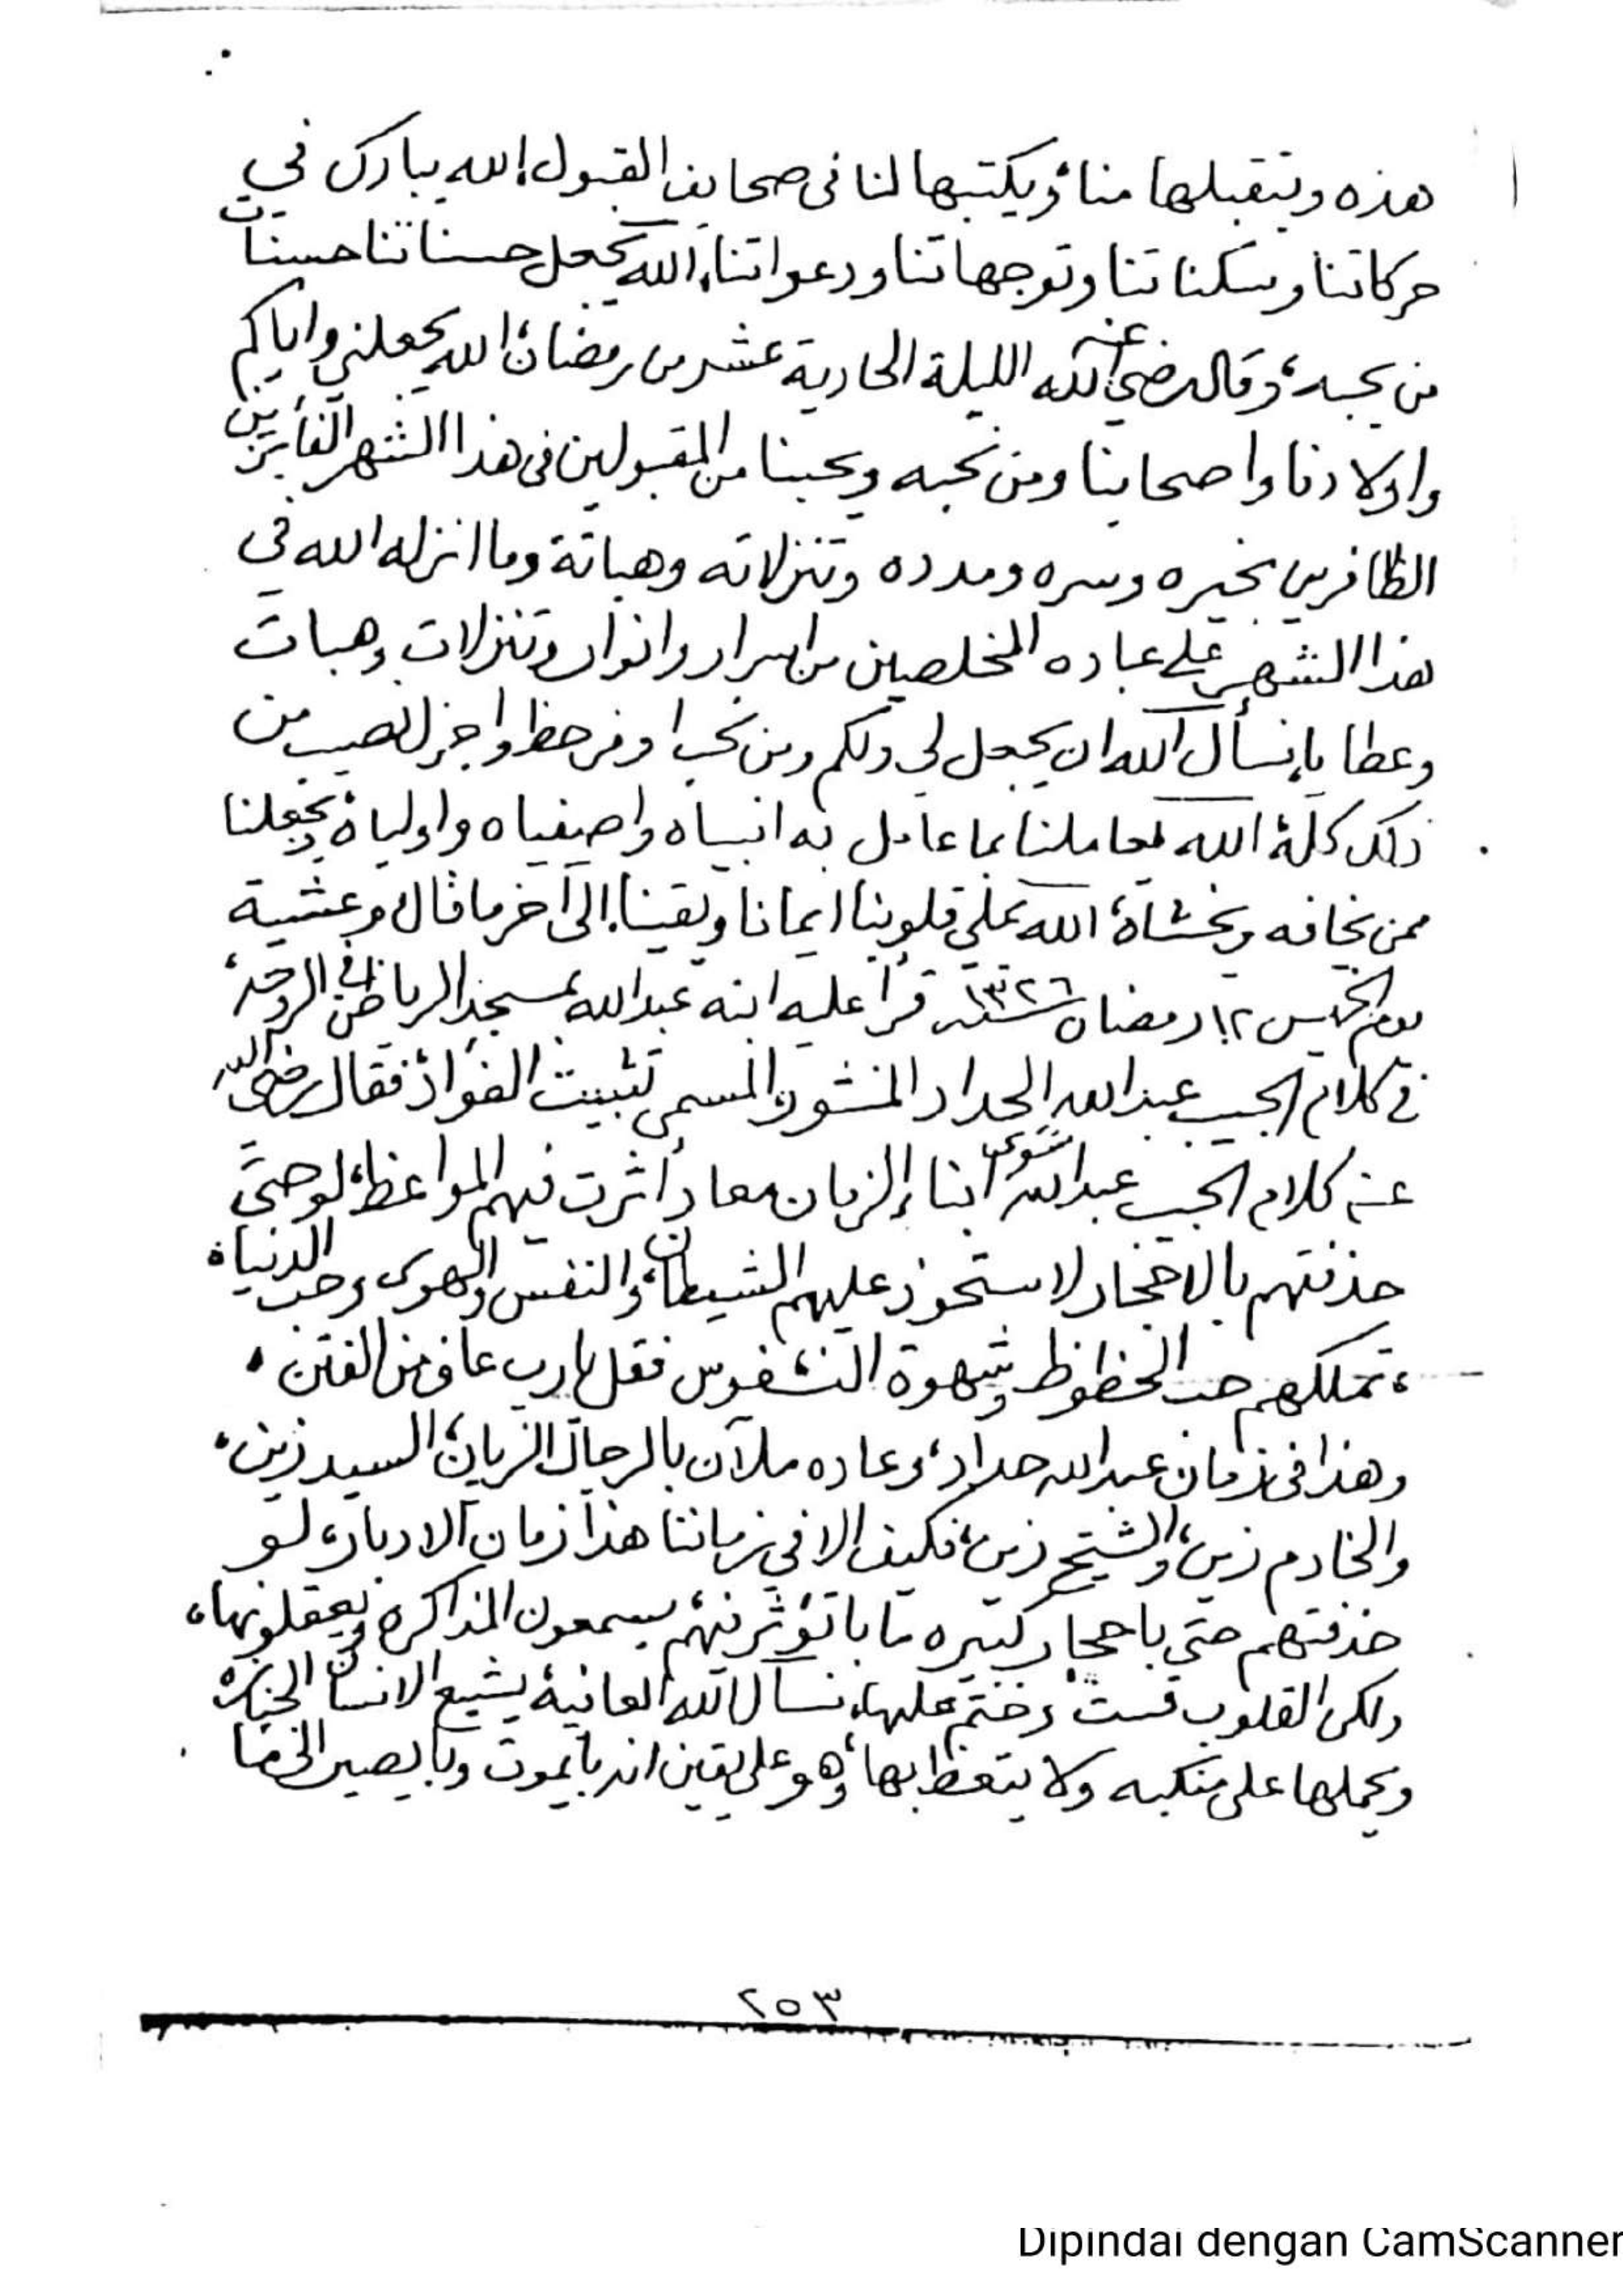 هذه ويتقبلها منا، ويكتبها لنا في صحايف القبول، الله يبارك في
حركاتنا وسكناتنا وتوجهاتنا ودعواتنا، الله يجعل حسناتنا حسنات
من يحبه، وقال رضي الله عنه الليلة الحادية عشر من رمضان، الله يجعلني واياكم
واولادنا واصحابنا ومن نحبه ويحبنا من المقبولين في هذا الشهر الفايزين
الظافرين بخيره وسره ومدده وتنزلاته وهباته وما انزله الله في
هذا الشهر على عباده المخلصين من اسرار وانوار وتنزلات وهبات
وعطايا، نسأل الله ان يجعل لي ولكم ومن نحب اوفر حظ واجزل نصيب من
ذلك كله، الله يعاملنا بما عامل به انبياه واصفياه واولياه، يجعلنا
ممن يخافه ويخشاه، الله يملي قلوبنا ايمانا ويقينا، إلى آخر ما قال، وعشية
يوم الخميس ١٢ رمضان سنة ١٣٢٦ قرأ عليه ابنه عبدالله بمسجد الرياض في الروحة،
في كلام الحبيب عبدالله الحداد المنثور المسمى تثبيت الفؤاد، فقال رضي الله
عنه كلام الحبيب عبدالله شوى ابناء الزمان معاد أثرت فيهم المواعظ، لو حتى
حذفتهم بالاحجار لاستحوذ عليهم الشيطان، والنفس والهوى وحب الدنيا،
، تملكهم حب الحظوظ وشهوة النفوس فقل يارب عاف من الفتن ،
وهذا في زمان عبدالله حداد، وعاده ملآن بالرجال الزيان، السيد زين،
والخادم زين، والشيخ زين، فكيف الا في زماننا هذا زمان الادبار، لو
حذفتهم حتى باحجار كبيره ما باتؤثر فيهم، يسمعون المذاكره ويعقلونها،
ولكن القلوب قست، وختم عليها، نسأل الله العافية، يشيع الانسان الجنازه
ويحملها على منكبه ولا يتعظ بها، وهو على يقين انه بايموت وبايصير الى ما
٢٥٣
Dipindai dengan CamScanner